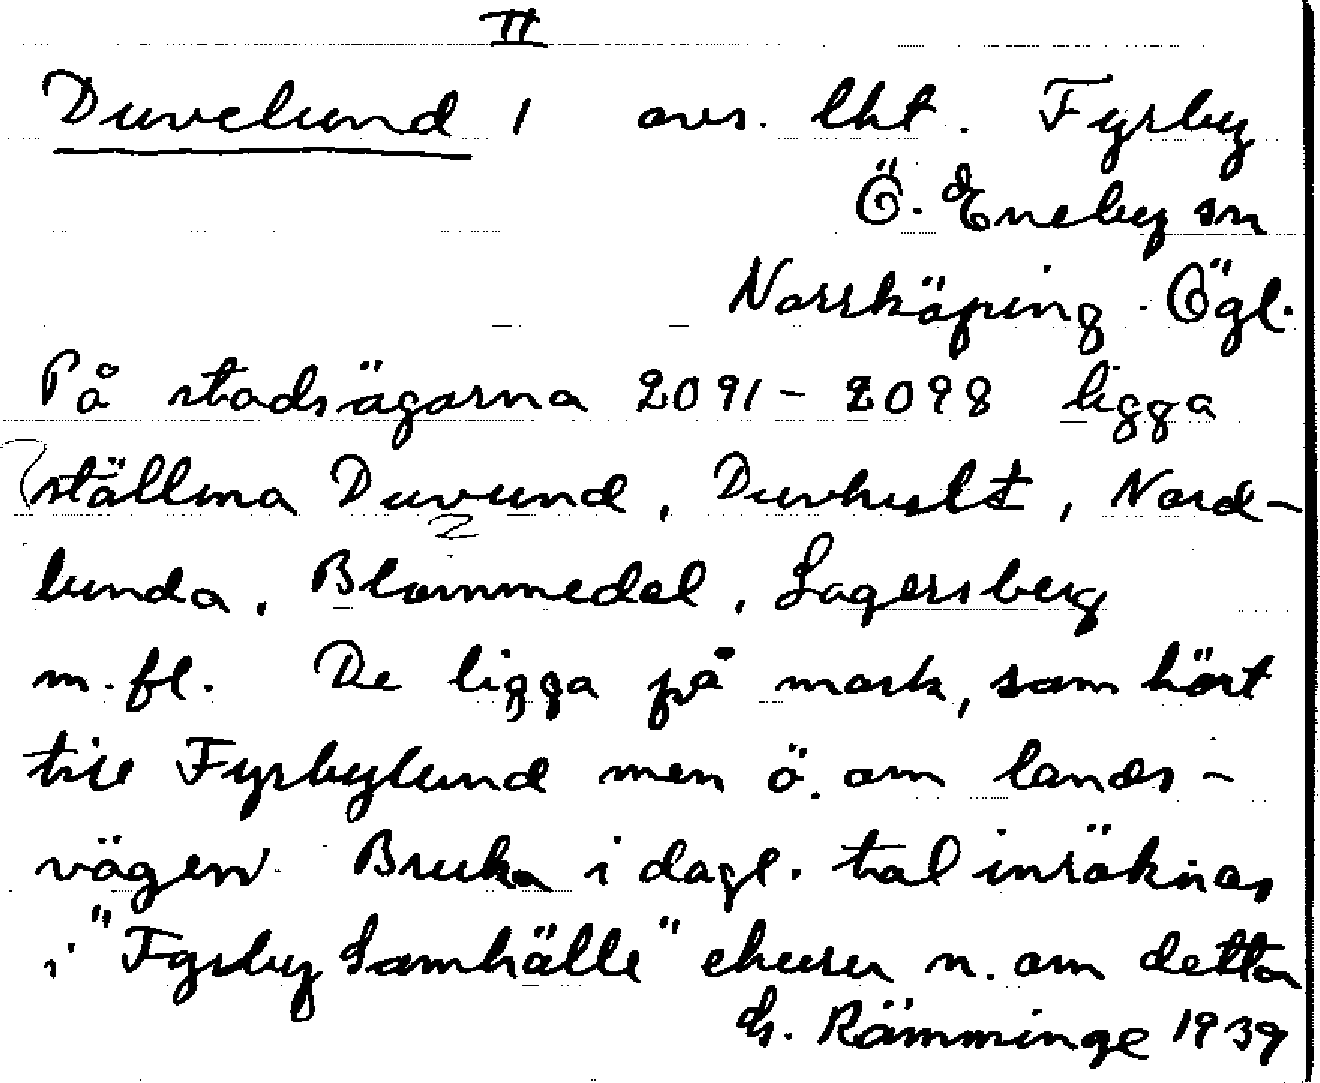 II
Duvelund 1 avs. lht. Fyrby
Ö. Eneby sn
Norrköping Ögl.
På stadsägorna 2091-2098 ligga
ställena Duvund, Duvhult, Nord-
lunda, Blommedal, Lagersberg
m.fl. De ligga på mark, som hört
till Fyrbylund men ö. om lands-
vägen. Bruka i dagl. tal inräknas
i "Fyrby Samhälle" ehuru n. om detta
G. Rämminge 1939